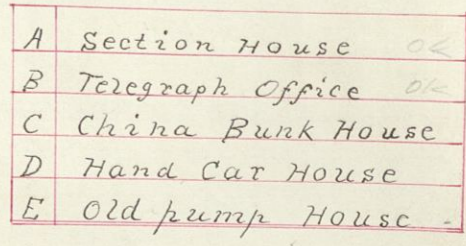 A Section House OK
B Telegraph Office OK
C China Bunk House
D Hand Car House
E Old pump House -